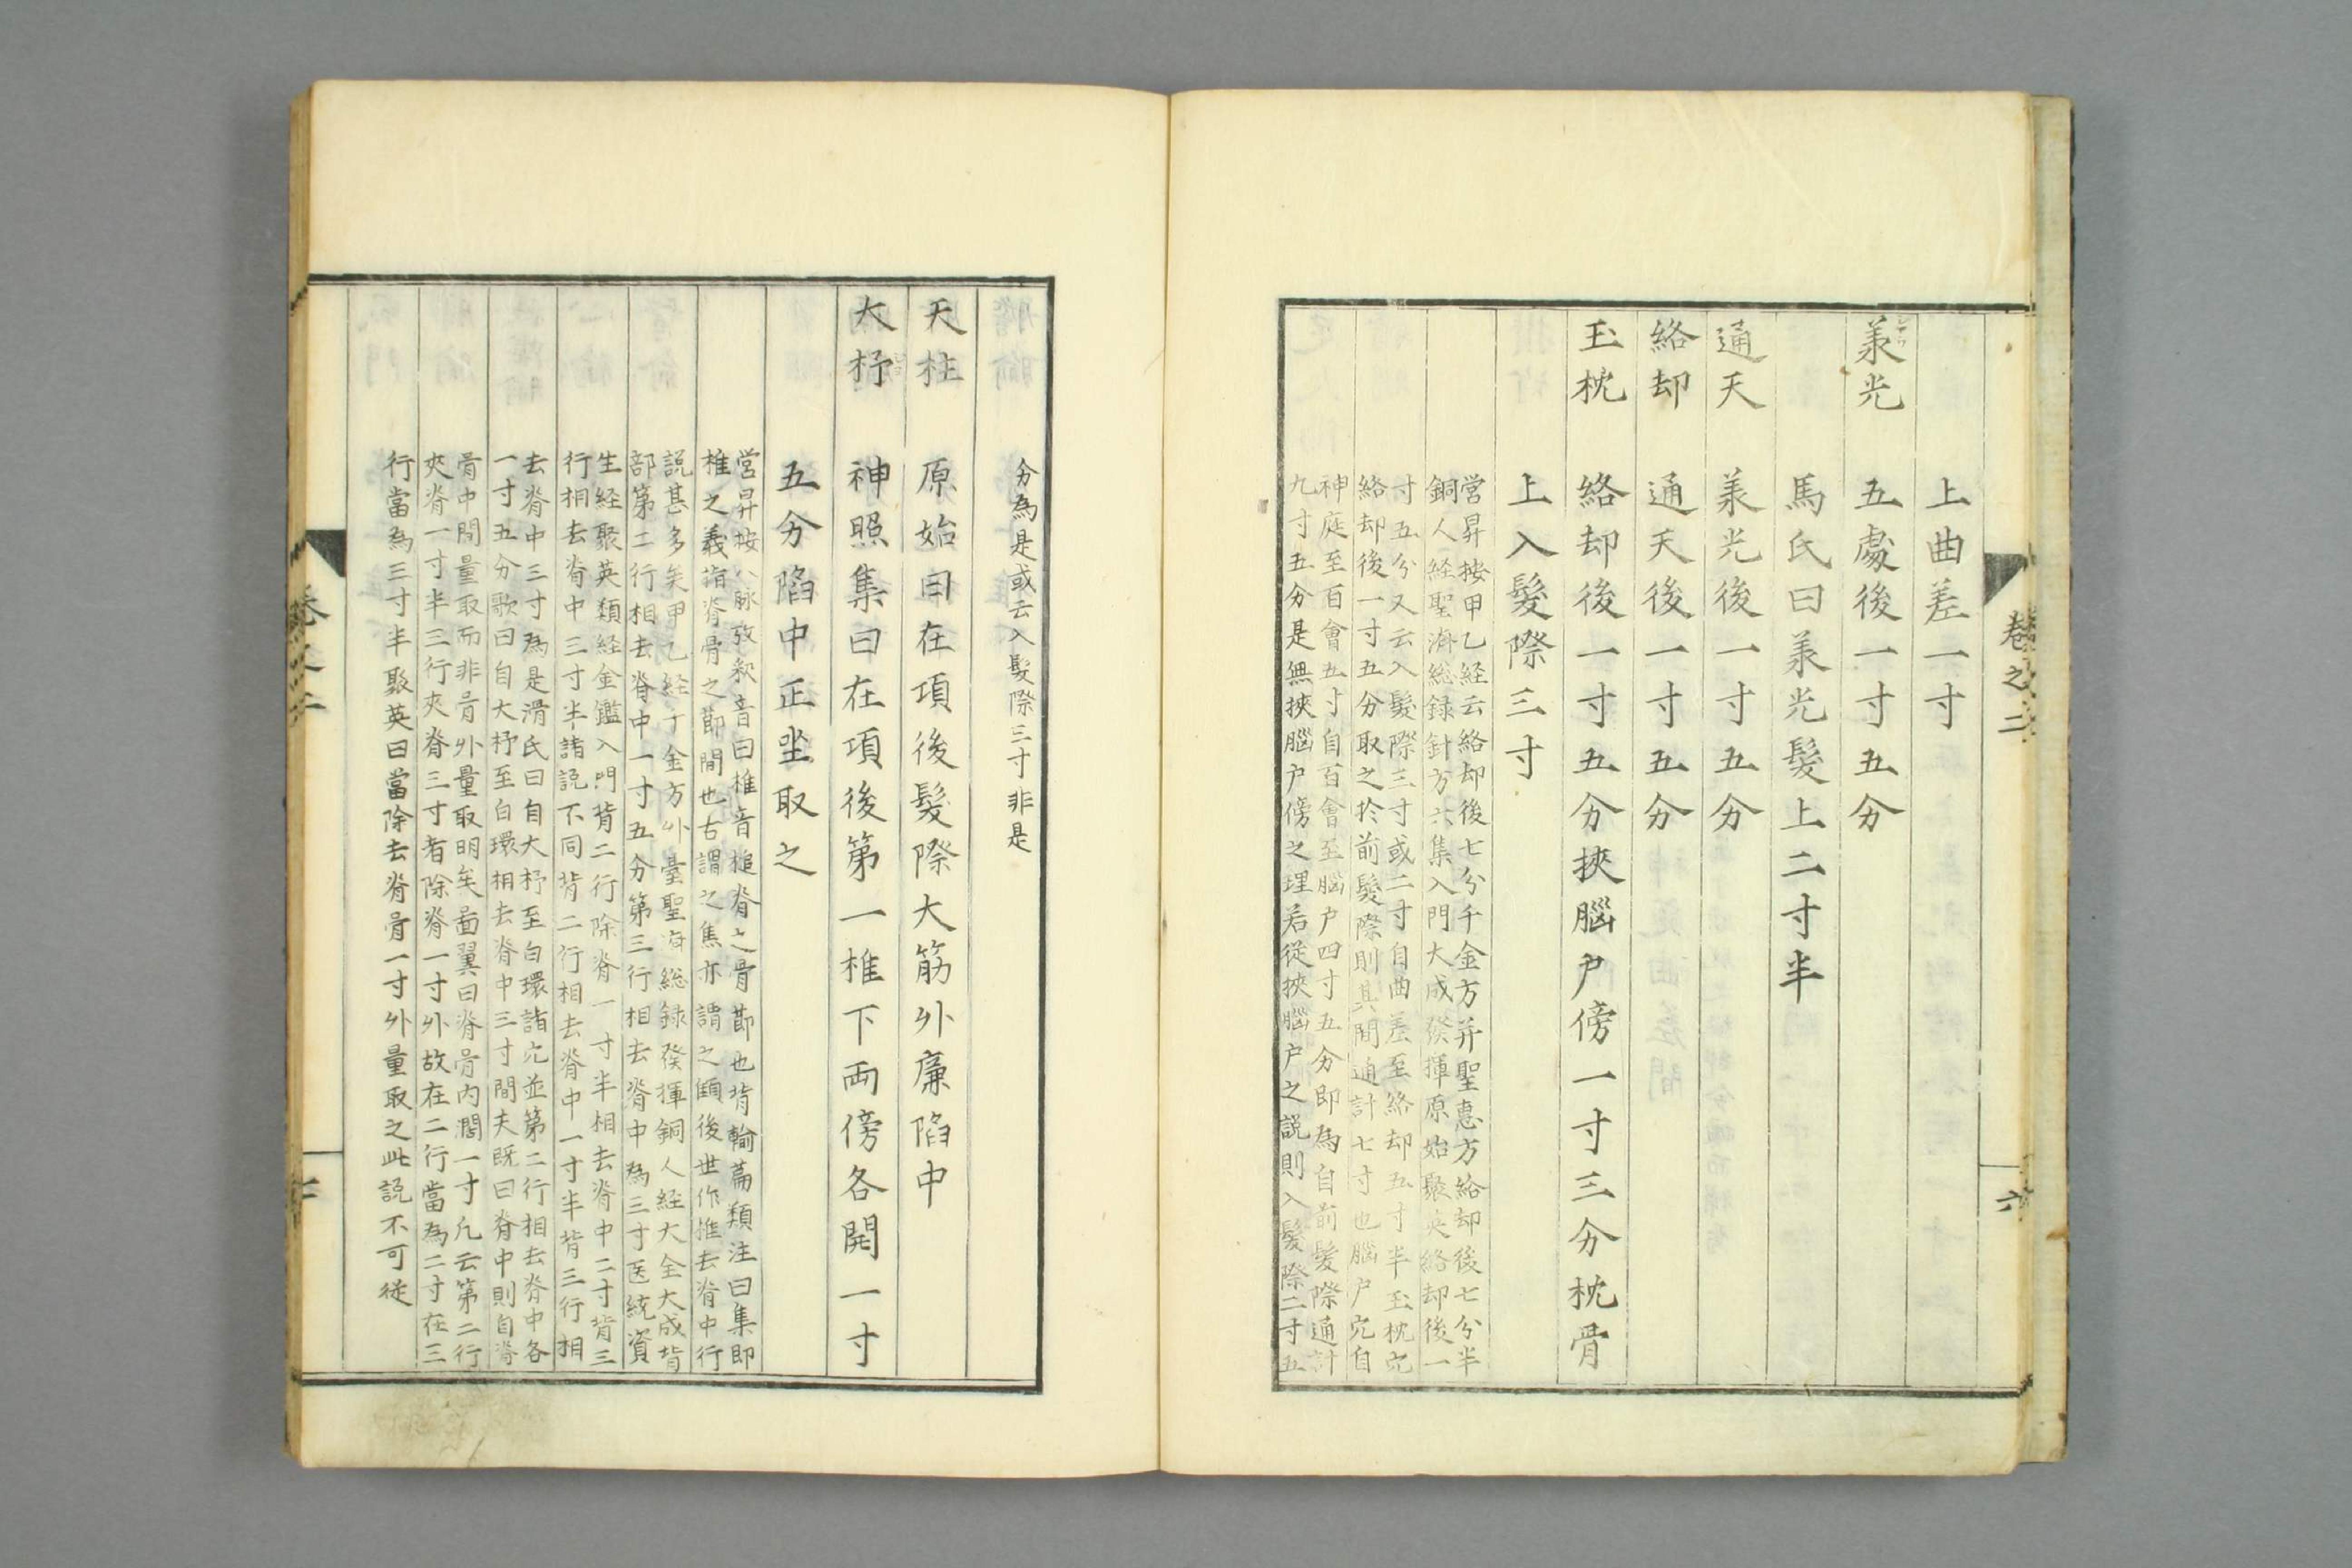 卷之二
六
上曲差一寸
承光 五處後一寸五分
馬氏曰承光髮上二寸半
通天 承光後一寸五分
絡却 通天後一寸五分
玉枕 絡却後一寸五分挾腦戶傍一寸三分枕骨
上入髮際三寸
營昇按甲乙経云絡却後七分千金方并聖惠方絡却後七分半
銅人経聖濟総録針方六集入門大成發揮原始聚英絡却後一
寸五分又云入髮際三寸或二寸自曲差至絡却五寸半玉枕穴
絡却後一寸五分取之於前髮際則其間通計七寸也腦戶穴自
神庭至百會五寸自百會至腦戶四寸五分即為自前髮際通計
九寸五分是無挾腦戶傍之理若從挾腦戶之說則入髮際二寸五
分為是或云入髮際三寸非是
天柱 原始曰在項後髮際大筋外廉陷中
大杼 神照集曰在項後第一椎下両傍各開一寸
五分陷中正坐取之
營昇按八脉攷釈音曰椎音槌脊之骨節也背輸篇類注曰集即
椎之義指脊骨之節間也古謂之焦亦謂之顀後世作椎去脊中行
說甚多矣甲乙経千金方外臺聖濟総録發揮銅人経大全大成背
部第二行相去脊中一寸五分第三行相去脊中為三寸医統資
生経聚英類経金鑑入門背二行除脊一寸半相去脊中二寸背三
行相去脊中三寸半諸說不同背二行相去脊中一寸半背三行相
去脊中三寸為是滑氏曰自大杼至白環諸穴並第二行相去脊中各
一寸五分歌曰自大杼至白環相去脊中三寸間夫既曰脊中則自脊
骨中間量取而非骨外量取明矣圖翼曰脊骨內闊一寸凡云第二行
夾脊一寸半三行夾脊三寸者除脊一寸外故在二行當為二寸在三
行當為三寸半聚英曰當除去脊骨一寸外量取之此說不可從